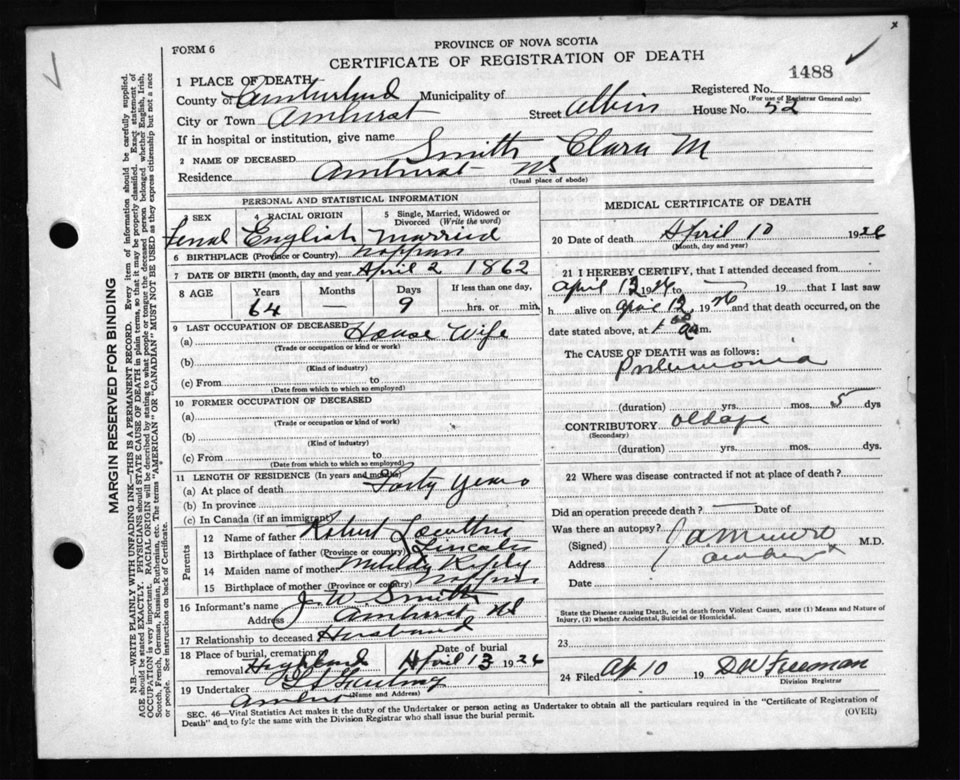 FORM 6
PROVINCE OF NOVA SCOTIA
CERTIFICATE OF REGISTRATION OF DEATH
1488
1 PLACE OF DEATH
Registered No.
(For use of Registrar General only)
County of Cumberland Municipality of
City or Town Amherst Street Albion House No. 52
If in hospital or institution, give name
2 NAME OF DECEASED Smith Clara M
Residence Amherst NS
(Usual place of abode)
PERSONAL AND STATISTICAL INFORMATION
3 SEX 4 RACIAL ORIGIN 5 Single, Married, Widowed or Divorced (Write the word)
Femal English Married
6 BIRTHPLACE (Province or Country) Nappan
7 DATE OF BIRTH (month, day and year) April 2 1862
8 AGE Years Months Days If less than one day,
64 — 9 hrs. or min.
9 LAST OCCUPATION OF DECEASED
(a) House Wife
(Trade or occupation or kind or work)
(b)
(Kind of industry)
(c) From to
(Date from which to which so employed)
10 FORMER OCCUPATION OF DECEASED
(a)
(Trade or occupation or kind of work)
(b)
(Kind of industry)
(c) From to
(Date from which to which so employed)
11 LENGTH OF RESIDENCE (In years and months)
(a) At place of death Forty Years
(b) In province
(c) In Canada (if an immigrant)
Parents
12 Name of father Robert
13 Birthplace of father (Province or country)
14 Maiden name of mother Ripley
15 Birthplace of mother (Province or country) Nappan
16 Informant's name J. W. Smith
Address Amherst NS
17 Relationship to deceased Husband
18 Place of burial, cremation Date of burial
removal Highland April 13 1926
19 Undertaker
(Name and Address)
Amherst
MEDICAL CERTIFICATE OF DEATH
20 Date of death April 10 1926
(Month, day and year)
21 I HEREBY CERTIFY, that I attended deceased from
April 12 1926 to — 19 that I last saw
h alive on April 12 1926 and that death occurred, on the
date stated above, at 1 am.
The CAUSE OF DEATH was as follows:
Pneumonia
(duration) yrs. mos. 5 dys
CONTRIBUTORY old age
(Secondary)
(duration) yrs. mos. dys.
22 Where was disease contracted if not at place of death?
Did an operation precede death? — Date of
Was there an autopsy?
(Signed) M.D.
Address Amherst
Date
State the Disease causing Death, or in death from Violent Causes, state (1) Means and Nature of
Injury, (2) whether Accidental, Suicidal or Homicidal.
23
24 Filed Ap 10 19 DW Freeman
Division Registrar
SEC. 46—Vital Statistics Act makes it the duty of the Undertaker or person acting as Undertaker to obtain all the particulars required in the "Certificate of Registration of
Death" and to fyle the same with the Division Registrar who shall issue the burial permit.
(OVER)
MARGIN RESERVED FOR BINDING
N.B.—WRITE PLAINLY WITH UNFADING INK—THIS IS A PERMANENT RECORD. Every item of information should be carefully supplied.
AGE should be stated EXACTLY. PHYSICIANS should STATE CAUSE OF DEATH in plain terms, so that it may be properly classified. Exact statement of
OCCUPATION is very important. RACIAL ORIGIN will be described by stating to what people or tongue the deceased person belonged whether English, Irish,
Scotch, French, German, Russian, Ruthenian, etc. The terms "AMERICAN" OR "CANADIAN" MUST NOT BE USED as they express citizenship but not a race
or people. See instructions on back of Certificate.